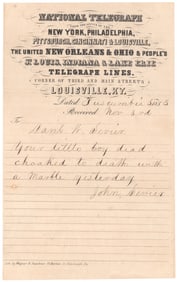 NATIONAL TELEGRAPH
NEW YORK, PHILADELPHIA,
PITTSBURGH, CINCINNATI & LOUISVILLE,
THE UNITED NEW ORLEANS & OHIO & PEOPLE'S
ST LOUIS, INDIANA & LAKE ERIE
TELEGRAPH LINES.
CORNER OF THIRD AND MAIN STREETS
LOUISVILLE, KY.
Dated Tuscumbia
Received Nov 3rd
To
Your little boy died
choaked to death with
a Marble yesterday
John